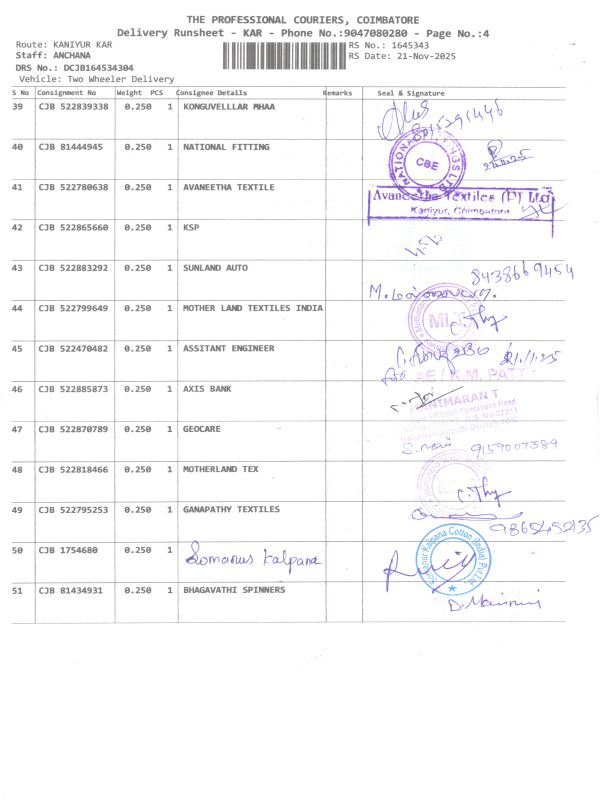 THE PROFESSIONAL COURIERS, COIMBATORE
Delivery Runsheet - KAR - Phone No.:9047080280 - Page No.:4
Route: KANIYUR KAR
RS No.: 1645343
Staff: ANCHANA
RS Date: 21-Nov-2025
DRS No.: DCJB164534304
Vehicle: Two Wheeler Delivery
S No Consignment No Weight PCS Consignee Details Remarks Seal & Signature
39 CJB 522839338 0.250 1 KONGUVELLLAR MHAA
40 CJB 81444945 0.250 1 NATIONAL FITTING
CBE
41 CJB 522780638 0.250 1 AVANEETHA TEXTILE
Avaneetha Textiles (P) Ltd
Kaniyur, Coimbatore
42 CJB 522865660 0.250 1 KSP
43 CJB 522883292 0.250 1 SUNLAND AUTO
8438669454
44 CJB 522799649 0.250 1 MOTHER LAND TEXTILES INDIA
45 CJB 522470482 0.250 1 ASSITANT ENGINEER
46 CJB 522885873 0.250 1 AXIS BANK
47 CJB 522870789 0.250 1 GEOCARE
9159007389
48 CJB 522818466 0.250 1 MOTHERLAND TEX
49 CJB 522795253 0.250 1 GANAPATHY TEXTILES
50 CJB 1754680 0.250 1 Somanus kalpana
Somanur Kalpana Cotton (India) Pvt Ltd.
51 CJB 81434931 0.250 1 BHAGAVATHI SPINNERS